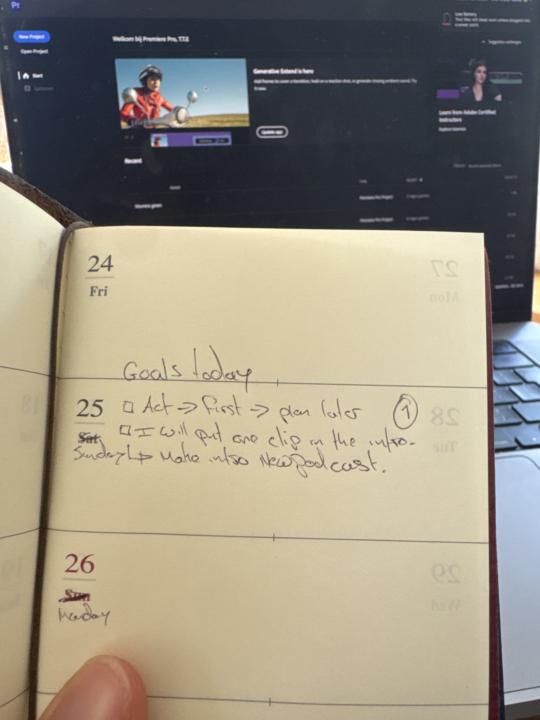 Pr
New Project
Open Project
Start
Welkom bij Premiere Pro, T.T.E
Low Battery
Generative Extend is here
Update app
Learn from Adobe Certified
Instructors
Recent
Premiere Pro Project
Premiere Pro Project
24
Fri
27
Mon
Goals today
25
Sat
Sunday
□ Act → First → plan later ①
□ I will put one clip in the intro.
↳ Make intro New Podcast.
28
Tue
26
Sun
Monday
29
Wed